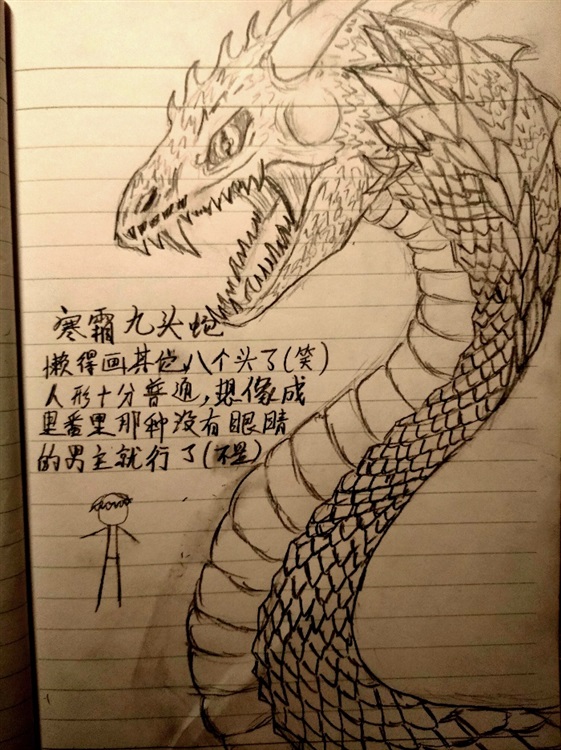 寒霜九头蛇
懒得画其他八个头了(笑)
人形十分普通,想像成
里番里那种没有眼睛
的男主就行了(不是)